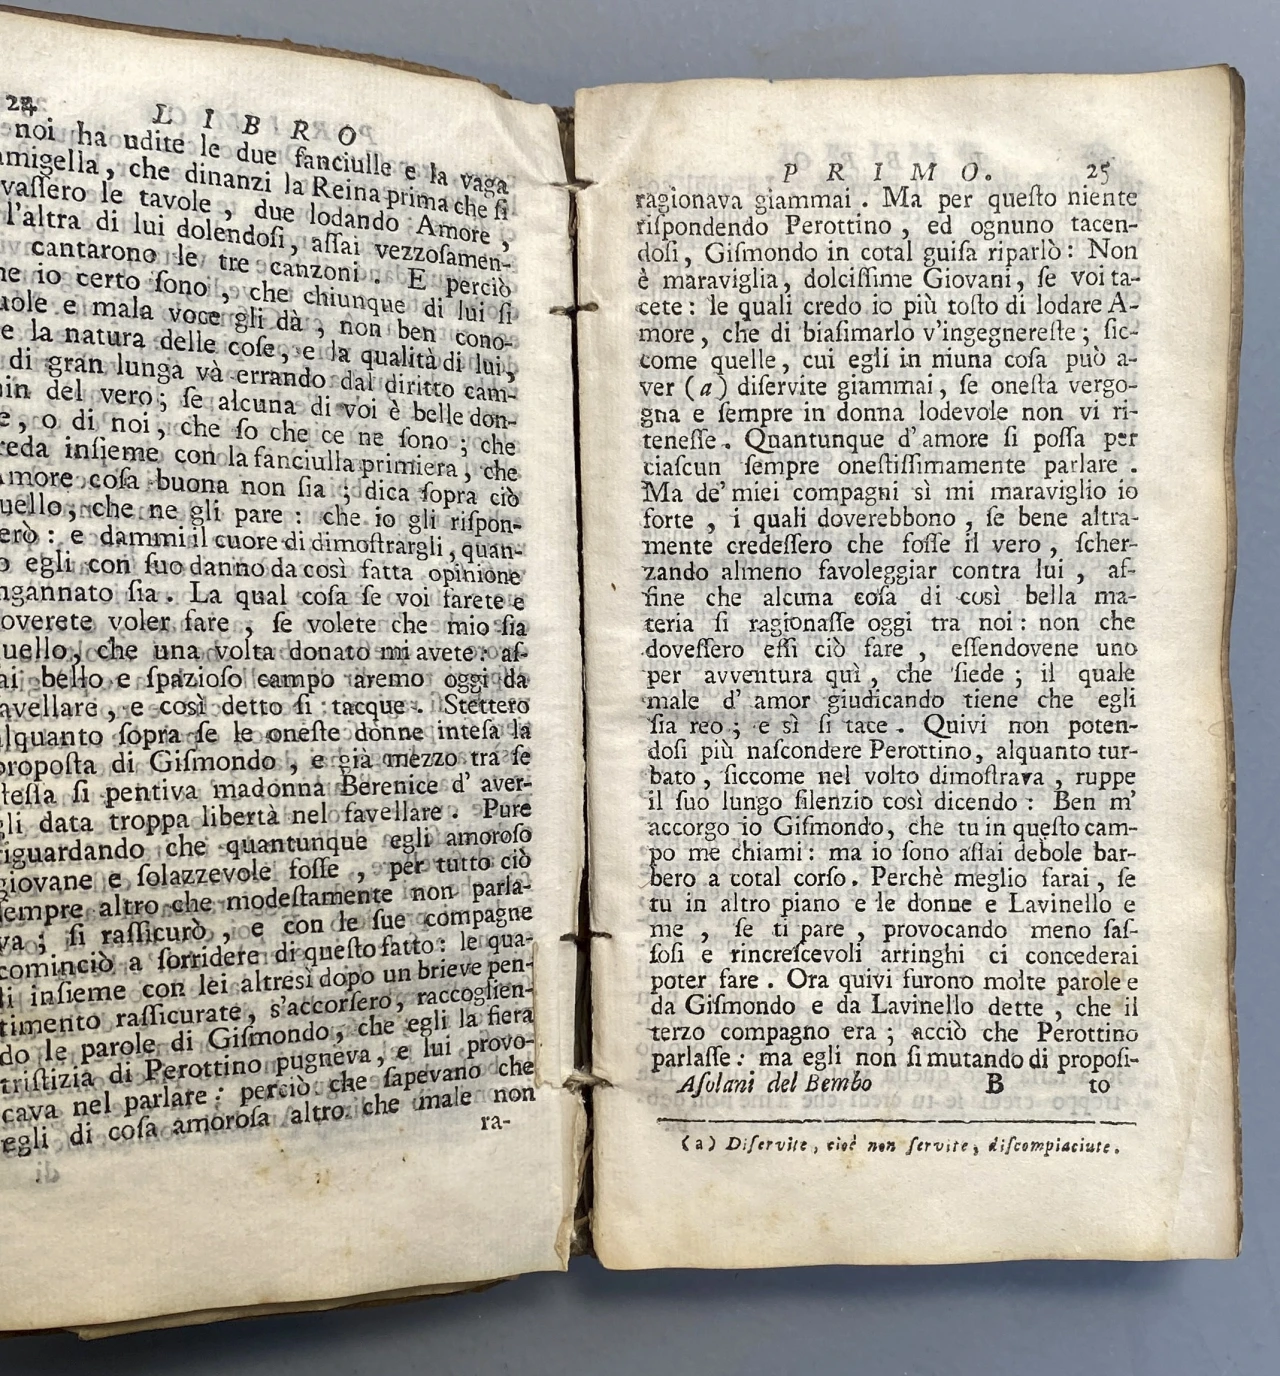 24 LIBRO
noi ha udite le due fanciulle e la vaga
migella, che dinanzi la Reina prima che ſi
vaſſero le tavole, due lodando Amore,
l'altra di lui dolendoſi, aſſai vezzoſamen-
cantarono le tre canzoni. E perciò
io certo ſono, che chiunque di lui ſi
e mala voce gli dà, non ben cono-
e la natura delle coſe, e la qualità di lui,
di gran lunga và errando dal diritto cam-
del vero; ſe alcuna di voi è belle don-
o di noi, che ſo che ce ne ſono; che
reda inſieme con la fanciulla primiera, che
more coſa buona non ſia; dica ſopra ciò
uello, che ne gli pare: che io gli riſpon-
erò: e dammi il cuore di dimoſtrargli, quan-
o egli con ſuo danno da così fatta opinione
ngannato ſia. La qual coſa ſe voi farete e
overete voler fare, ſe volete che mio ſia
uello, che una volta donato mi avete: aſ-
ai bello e ſpazioſo campo aremo oggi da
avellare, e così detto ſi tacque. Stettero
alquanto ſopra ſe le oneſte donne inteſa la
propoſta di Giſmondo, e già mezzo tra ſe
teſſa ſi pentiva madonna Berenice d'aver-
gli data troppa libertà nel favellare. Pure
riguardando che quantunque egli amoroſo
giovane e ſolazzevole foſſe, per tutto ciò
ſempre altro che modeſtamente non parla-
va; ſi raſſicurò, e con le ſue compagne
cominciò a ſorridere di queſto fatto: le qua-
li inſieme con lei altresì dopo un brieve pen-
timento raſſicurate, s'accorſero, raccoglien-
do le parole di Giſmondo, che egli la fiera
triſtizia di Perottino pugneva, e lui provo-
cava nel parlare: perciò che ſapevano che
egli di coſa amoroſa altro che male non
ra-
PRIMO. 25
ragionava giammai. Ma per queſto niente
riſpondendo Perottino, ed ognuno tacen-
doſi, Giſmondo in cotal guiſa riparlò: Non
è maraviglia, dolciſſime Giovani, ſe voi ta-
cete: le quali credo io più toſto di lodare A-
more, che di biaſimarlo v'ingegnereſte; ſic-
come quelle, cui egli in niuna coſa può a-
ver (a) diſervite giammai, ſe oneſta vergo-
gna e ſempre in donna lodevole non vi ri-
teneſſe. Quantunque d'amore ſi poſſa per
ciaſcun ſempre oneſtiſſimamente parlare.
Ma de' miei compagni sì mi maraviglio io
forte, i quali doverebbono, ſe bene altra-
mente credeſſero che foſſe il vero, ſcher-
zando almeno favoleggiar contra lui, af-
fine che alcuna coſa di così bella ma-
teria ſi ragionaſſe oggi tra noi: non che
doveſſero eſſi ciò fare, eſſendovene uno
per avventura quì, che ſiede; il quale
male d'amor giudicando tiene che egli
ſia reo; e sì ſi tace. Quivi non poten-
doſi più naſcondere Perottino, alquanto tur-
bato, ſiccome nel volto dimoſtrava, ruppe
il ſuo lungo ſilenzio così dicendo: Ben m'
accorgo io Giſmondo, che tu in queſto cam-
po me chiami: ma io ſono aſſai debole bar-
bero a cotal corſo. Perchè meglio farai, ſe
tu in altro piano e le donne e Lavinello e
me, ſe ti pare, provocando meno ſaſ-
ſoſi e rincreſcevoli arringhi ci concederai
poter fare. Ora quivi furono molte parole e
da Giſmondo e da Lavinello dette, che il
terzo compagno era; acciò che Perottino
parlaſſe: ma egli non ſi mutando di propoſi-
Aſolani del Bembo B to
(a) Diſervite, cioè non ſervite, diſcompiaciute.